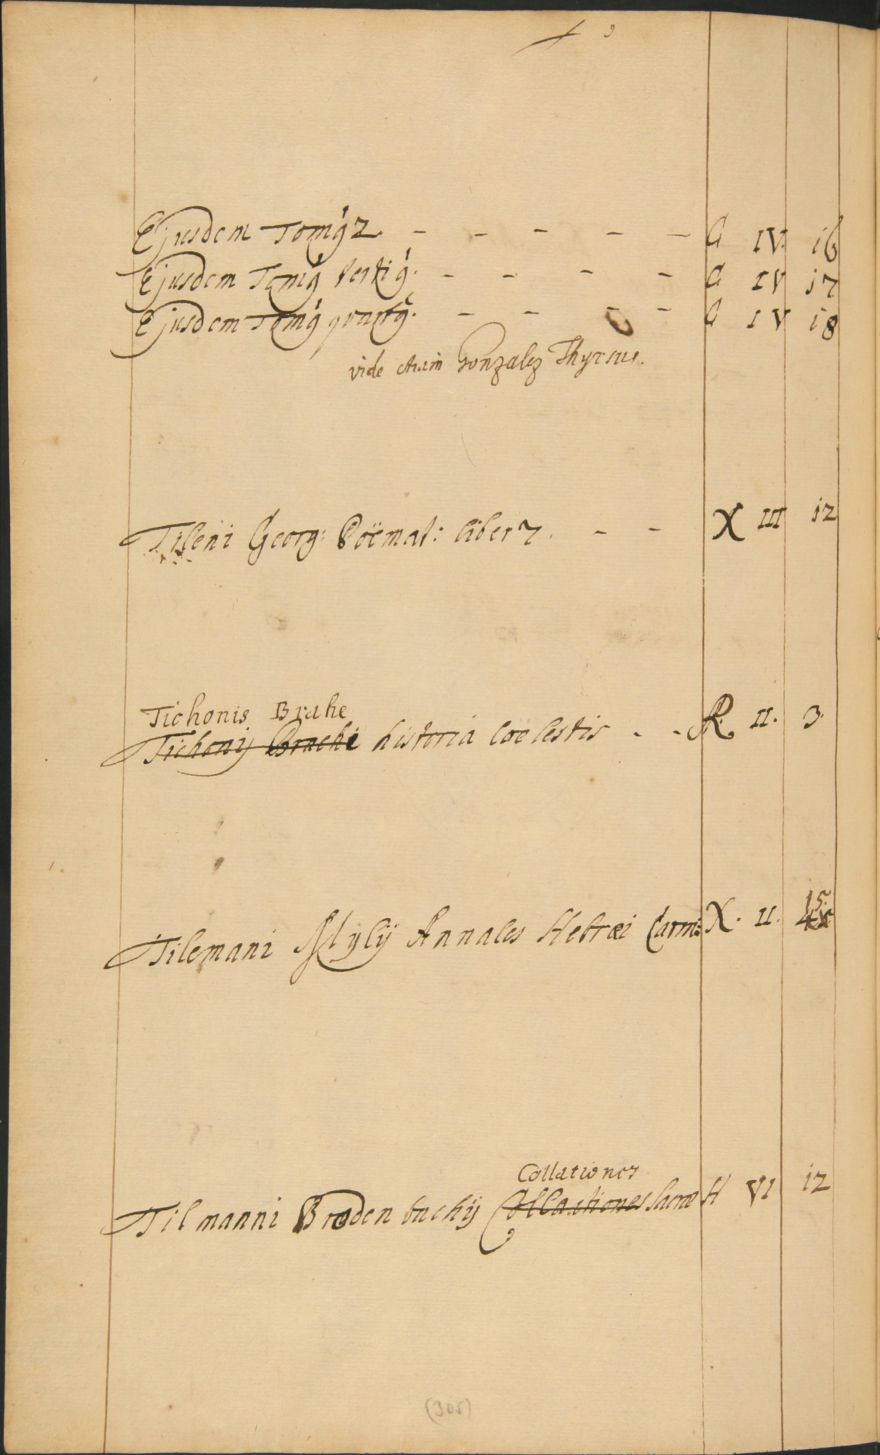 Ejusdem Tomꝰ 2. - - - - - G IV. 16
Ejusdem Tomꝰ tertiꝰ. - - - - G IV 17
Ejusdem Tomꝰ quartꝰ. - - - - G IV 18
vide etiam Gonzalez Thyrsus.
Tileni Georg: Poëmat: liber 7. - - X III 12
Tichonis Brahe
Tichonij Brachi historia coelestis - - R II. 3
Tilemani Mylij Annales Hebræi Carm: X. II. 15
Collationes
Tilmanni Bredenbachij Collationes sacræ H VI 12
(305)